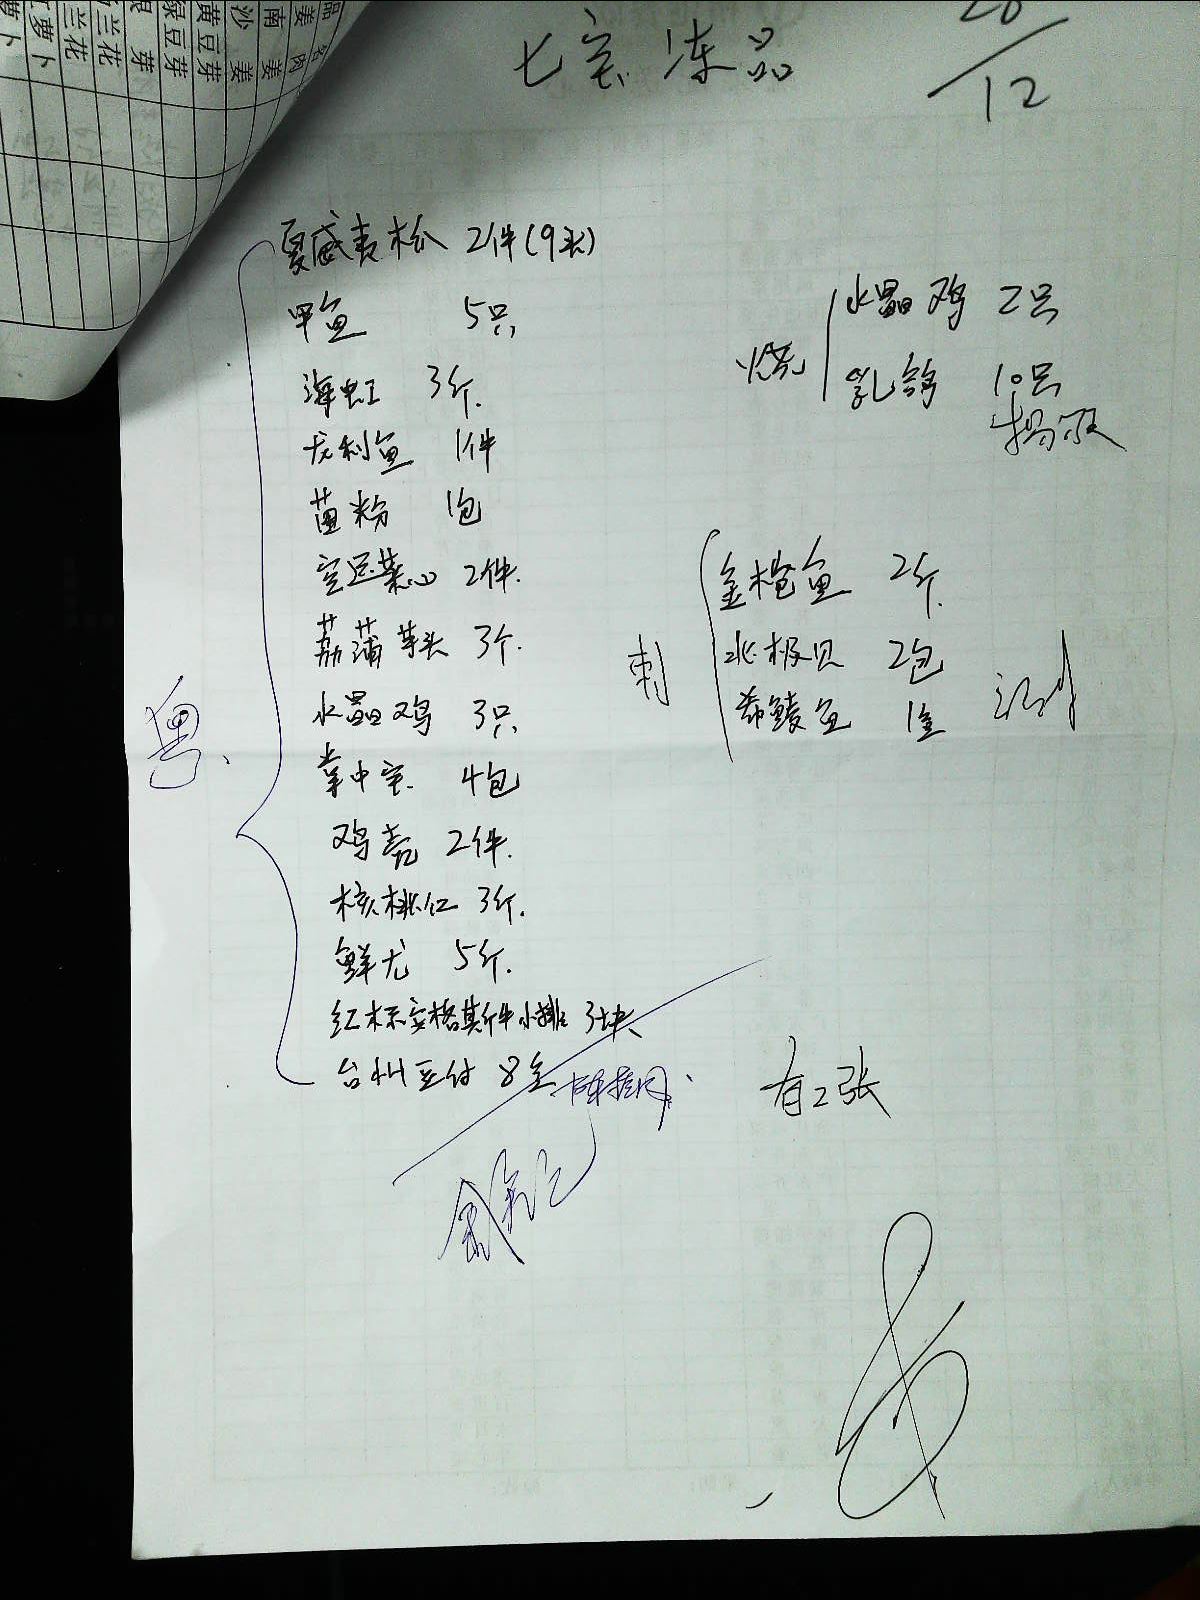 七宝冻品
20/12
夏威夷松 2件(9头)
甲鱼 5只
海虹 3斤.
龙利鱼 1件
茴粉 1包
空运菜心 2件.
荔蒲芋头 3个.
水晶鸡 3只
掌中宝. 4包
鸡壳 2件.
核桃仁 3斤.
鲜尤 5斤.
红标安格斯牛小排 3块
台州豆付 8盒
粤.
烧
水晶鸡 2只
乳鸽 10只
刺
金枪鱼 2斤.
北极贝 2包
希鲮鱼 1盒
有2张
品名
肉姜
南姜
沙姜
黄豆芽
绿豆芽
芽
兰花
兰花
萝卜
萝卜